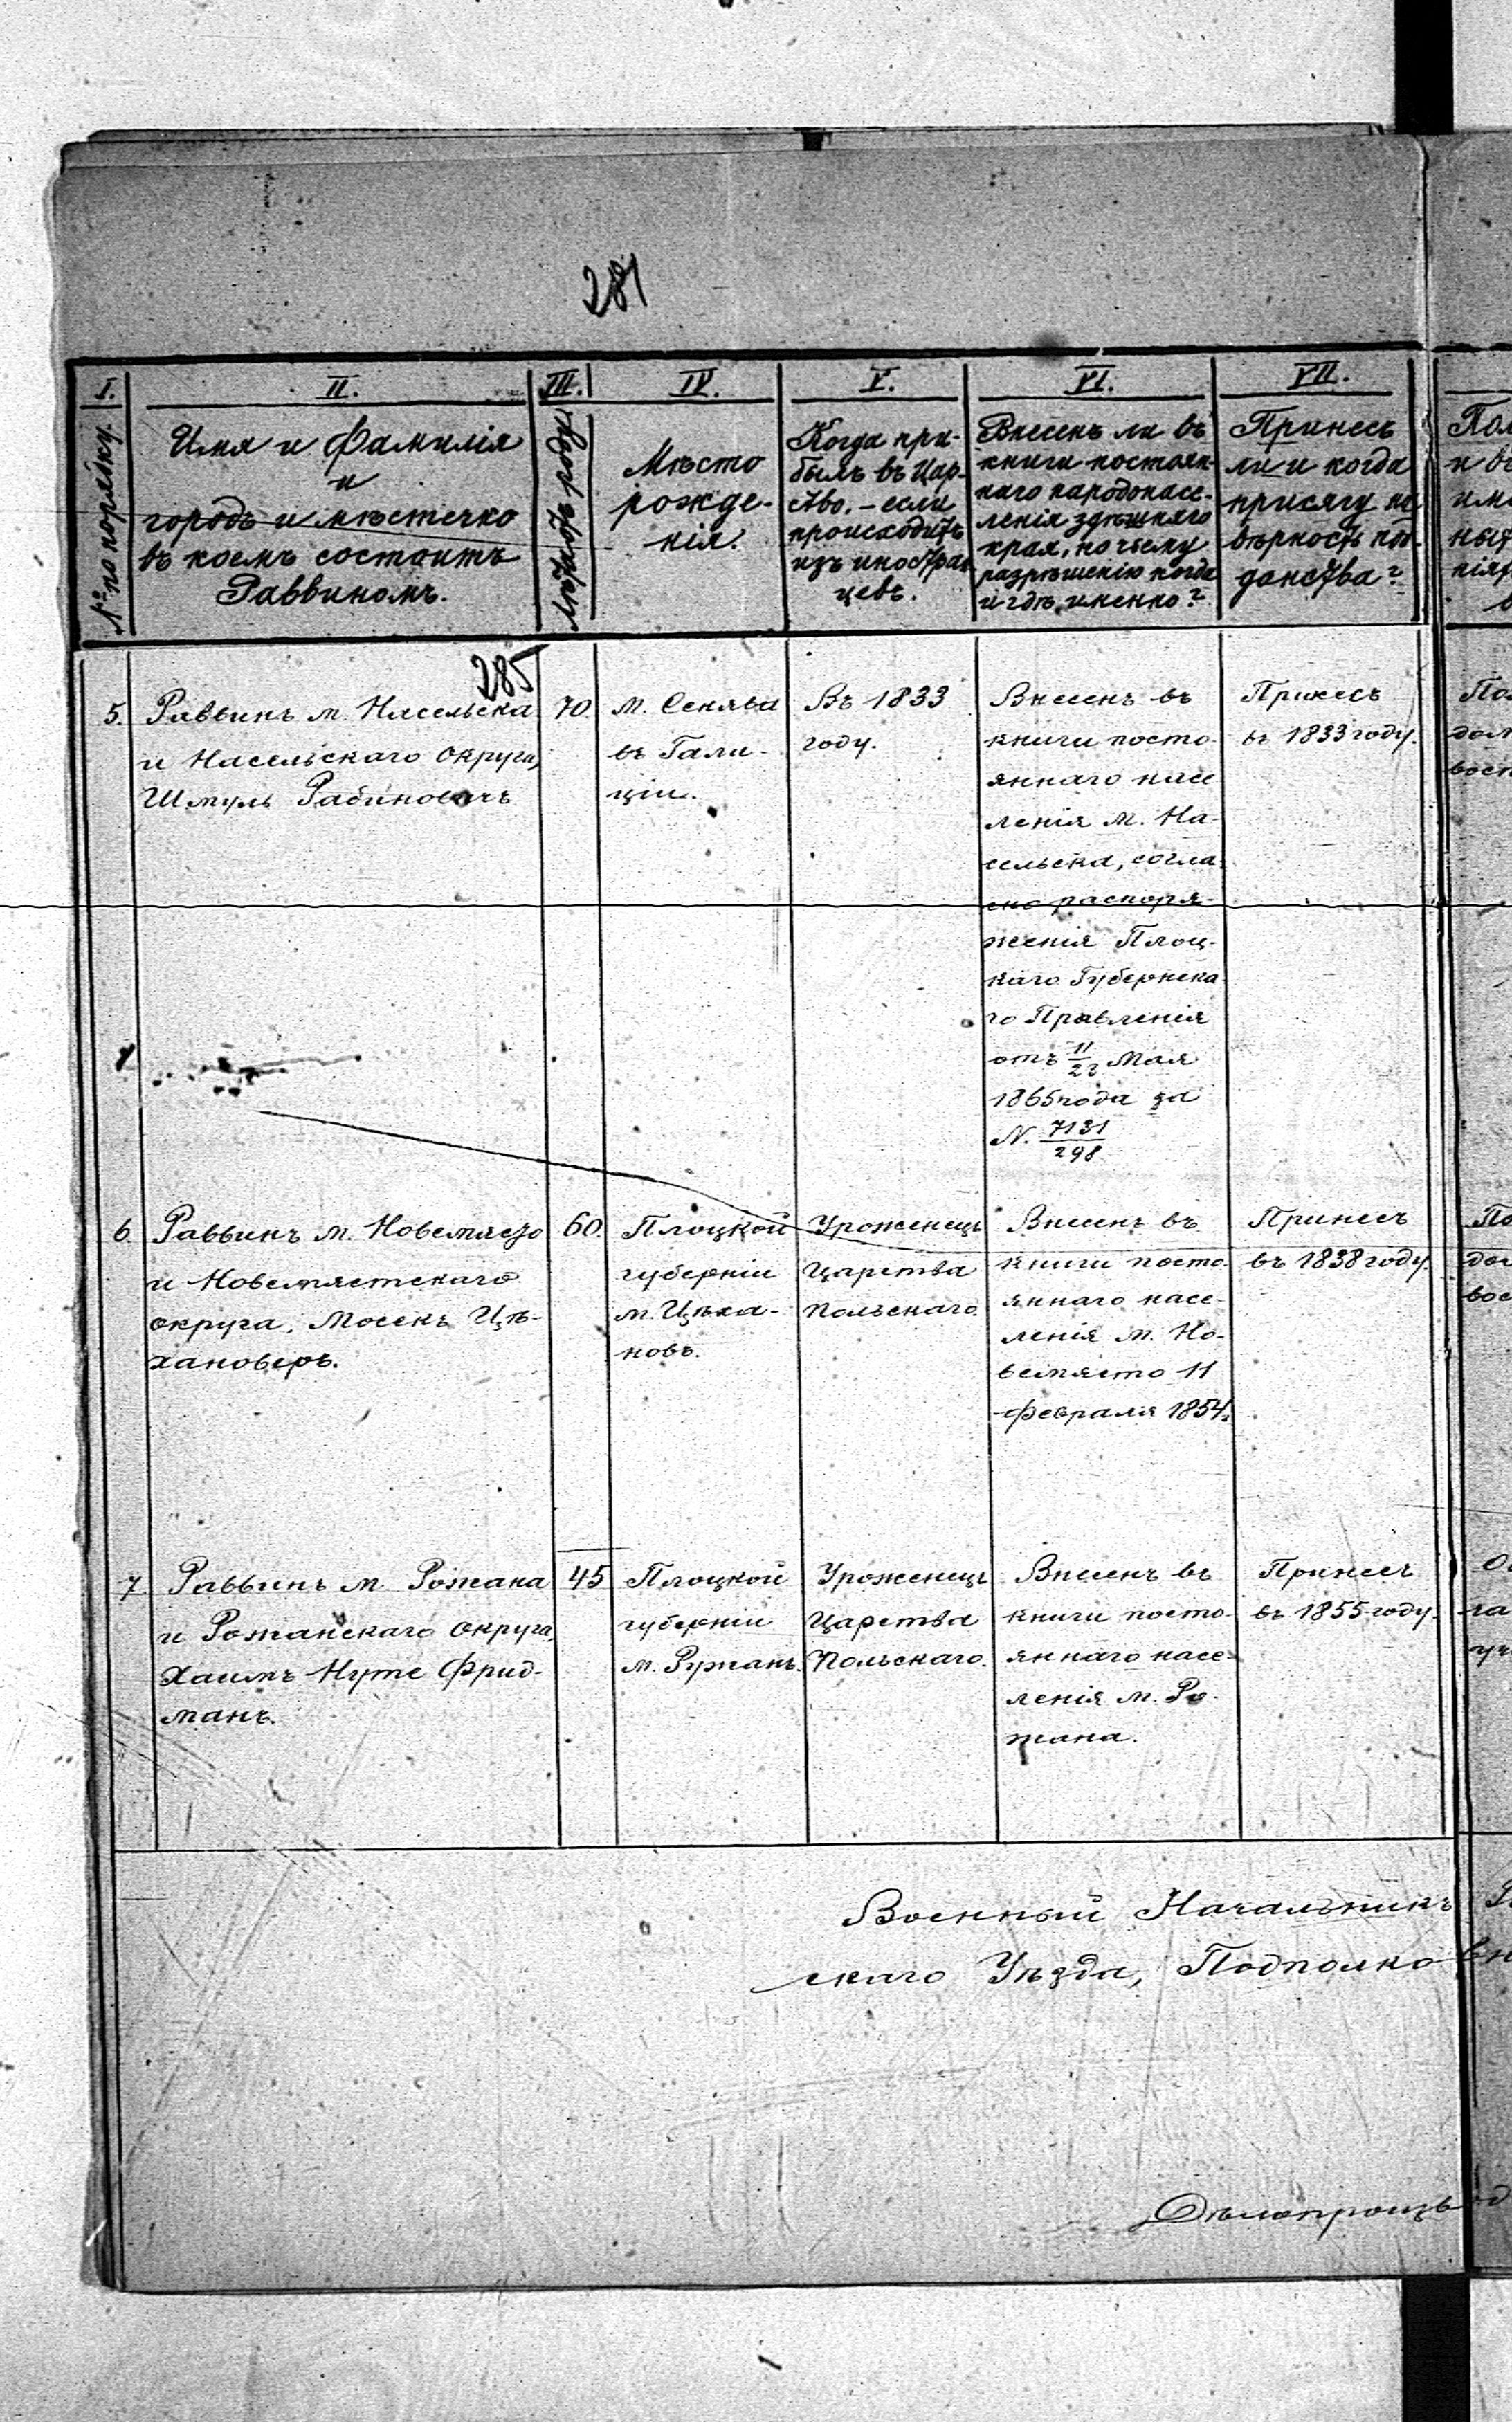 281
I.
II.
III.
IV.
V.
VI.
VII.
№ по порядку.
Имя и Фамилія
и
городъ и мѣстечко
въ коемъ состоитъ
Раввиномъ.
Мѣсто
рожде-
нія.
Когда при-
былъ въ Цар-
ство. – если
происходитъ
изъ иностран
цевъ.
Внесенъ ли въ
книги постоян-
наго народонасе-
ленія здѣшняго
края, по чьему
разрѣшенію когда
и гдѣ именно?
Принесъ
ли и когда
присягу на
вѣрность под-
данства?
285
5.
Раввинъ м. Насельска
и Насельскаго округа,
Шмуль Рабиновичъ
70.
м. Сенява
въ Гали-
ціи.
Въ 1833
году.
Внесенъ въ
книги посто-
яннаго насе
ленія м. На-
сельска, согла-
сно распоря-
женія Плоц-
каго Губернска
го Правленія
отъ 11/23 Мая
1865 года за
N. 7131/298
Принесъ
въ 1833 году.
6.
Раввинъ м. Новемясто
и Новемястскаго
округа, Мосекъ Цѣ-
хановеръ.
60.
Плоцкой
губерніи
м. Цѣха-
новъ.
Уроженецъ
Царства
Польскаго.
Внесенъ въ
книги посто-
яннаго насе-
ленія м. Но-
вемясто 11
февраля 1854 г.
Принесъ
въ 1838 году.
7.
Раввинъ м. Рожана
и Рожанскаго округа,
Хаимъ Нуте Фрид-
манъ.
45
Плоцкой
губерніи
м. Ружанъ.
Уроженецъ
Царства
Польскаго.
Внесенъ въ
книги посто-
яннаго насе-
ленія м. Ро-
жана.
Принесъ
въ 1855 году.
Военный Начальникъ
скаго Уѣзда, Подполков
Дѣлопроизв